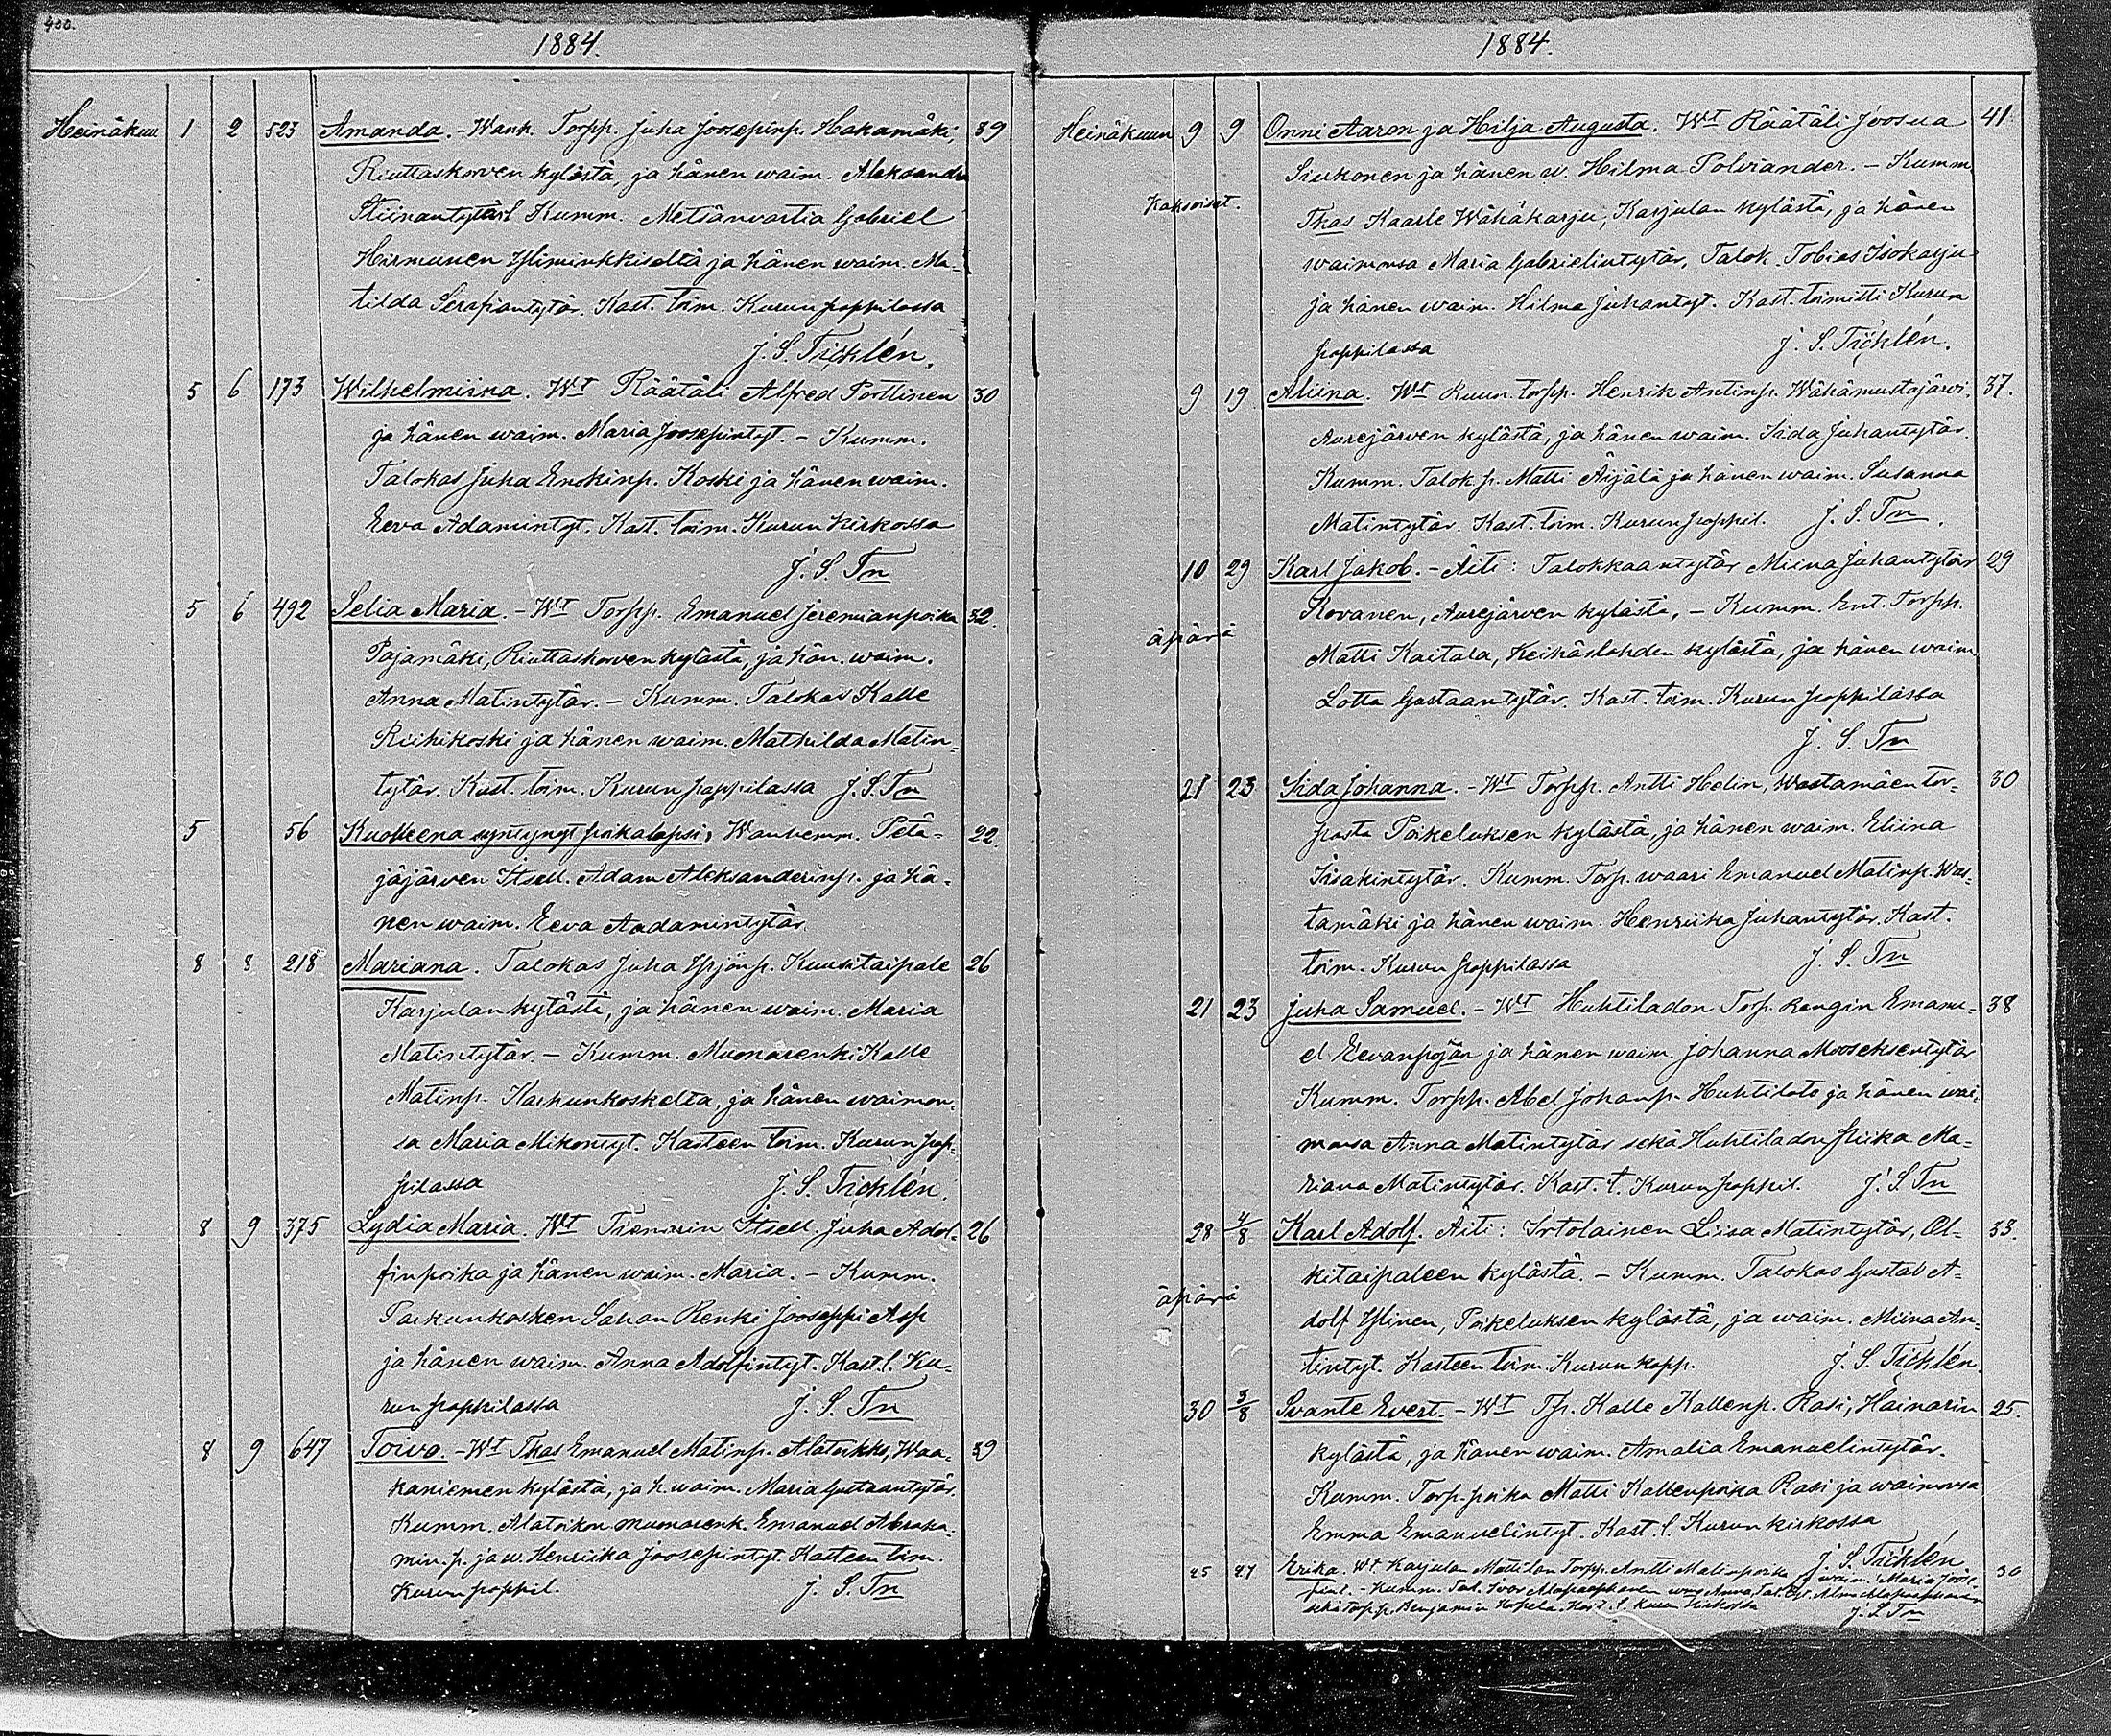 400.
1884.
Heinäkuu 1 2 523 Amanda. - Wanh. Torpp. Juha Joosepinp. Hakamäki, 39
Riuttaskorven kylästä, ja hänen waim. Aleksandra
Stiinantytär. Kumm. Metsänvartia Gabriel
Hirmunen Ylimukkiselta ja hänen waim. Ma-
tilda Serafiantytär. Kast. toim. Kurun pappilassa
J. S. Ticklén.
5 6 173 Wilhelmiina. Wt Räätäli Alfred Porttinen 30
ja hänen waim. Maria Joosepintyt. - Kumm.
Talokas Juha Enokinp. Koski ja hänen waim.
Eeva Adamintyt. Kast. toim. Kurun kirkossa
J. S. Tn
5 6 492 Selia Maria. - Wt Torpp. Emanuel Jeremianpoika 32.
Pajamäki, Riuttaskorven kylästä, ja hän. waim.
Anna Matintytär. - Kumm. Talokas Kalle
Riihikoski ja hänen waim. Mathilda Matin-
tytär. Kast. toim. Kurun pappilassa J. S. Tn
5 56 Kuolleena syntynyt poikalapsi, Wanhemm. Petä- 22.
jäjärven Itsell. Adam Aleksanderinp. ja hä-
nen waim. Eeva Aadamintytär.
8 8 218 Mariana. Talokas Juha Yrjönp. Kuusitaipale 26
Karjulan kylästä, ja hänen waim. Maria
Matintytär. - Kumm. Muonarenki Kalle
Matinp. Karhunkoskelta, ja hänen waimon-
sa Maria Mikontyt. Kasteen toim. Kurun pap-
pilassa J. S. Ticklén.
8 9 375 Lydia Maria. Wt Itsell. Juha Adol- 26
finpoika ja hänen waim. Maria. - Kumm.
Parkunkosken Sahan Renki Jooseppi Asp
ja hänen waim. Anna Adolfintyt. Kast. t. Ku-
run pappilassa J. S. Tn
8 9 647 Toivo. - Wt Tkas Emanuel Matinp. Alatoikko, Waa- 39
kaniemen kylästä, ja h. waim. Maria Gustaantytär.
Kumm. Alatoikon muonarenk. Emanuel Abraha-
min.p. ja w. Henriika Joosepintyt. Kasteen toim.
Kurun pappil. J. S. Tn
1884.
Heinäkuun 9 9 Onni Aaron ja Hilja Augusta. Wt Räätäli Joosua 41
Siukonen ja hänen w. Hilma Polviander. - Kumm.
Kaksoiset. Tkas Kaarle Wähäkarju, Karjulan kylästä, ja hänen
waimonsa Maria Gabrielintytär, Talok. Tobias Isokarju
ja hänen waim. Hilma Juhantyt. Kast. toimitti Kurun
pappilassa J. S. Ticklén.
9 19 Aliina. Wt Ruun. torpp. Henrik Antinp. Wähämustajärvi, 37.
Aurejärven kylästä, ja hänen waim. Iida Juhantytär.
Kumm. Talok. p. Matti Äijälä ja hänen waim. Susanna
Matintytär. Kast. toim. Kurun pappil. J. S. Tn.
10 29 Karl Jakob. - Äiti: Talokkaantytär Miina Juhantytär 29
Rovanen, Aurejärven kylästä, - Kumm. Ent. Torpp.
äpärä Matti Kaitala, Keihäslahden kylästä, ja hänen waim.
Lotta Gustaantytär. Kast. toim. Kurun pappilassa
J. S. Tn
21 23 Iida Johanna. - Wt Torpp. Antti Helin, Wastamäen tor- 30
pasta Poikeluksen kylästä, ja hänen waim. Eliina
Iisakintytär. Kumm. Torp. waari Emanuel Matinp. Was-
tamäki ja hänen waim. Henriika Juhantytär. Kast.
toim. Kurun pappilassa J. S. Tn
21 23 Juha Samuel. - Wt Huhtiladon Torp. Rengin Emanu- 38
el Eevanpojan ja hänen waim. Johanna Mooseksentytär
Kumm. Torpp. Abel Johanp. Huhtilato ja hänen wai-
monsa Anna Matintytär sekä Huhtiladon Piika Ma-
riana Matintytär. Kast. t. Kurun pappil. J. S. Tn
28 4/8 Karl Adolf. Äiti: Irtolainen Liisa Matintytär, Ol- 33.
kitaipaleen kylästä. - Kumm. Talokas Gustav A-
äpärä dolf Ylinen, Poikeluksen kylästä, ja waim. Miina An-
tintyt. Kasteen toim. Kurun kapp. J. S. Ticklén.
30 3/8 Svante Evert. - Wt Tp. Kalle Kallenp. Rasi, Hainarin 25.
kylästä, ja hänen waim. Amalia Emanuelintytär.
Kumm. Torp. poika Matti Kallenpoika Rasi ja waimonsa
Emma Emanuelintyt. Kast. t. Kurun kirkossa
J. S. Ticklén
25 27 Erika. Wt. Karjulan Mattilan Torpp. Antti Matinpoika j waim. Maria Joose- 30
pint. - Kumm. Tal. Ivar
sekä Torpp. Benjamin Kopela. Kast. t. Kurun kirkossa J. S. Tn